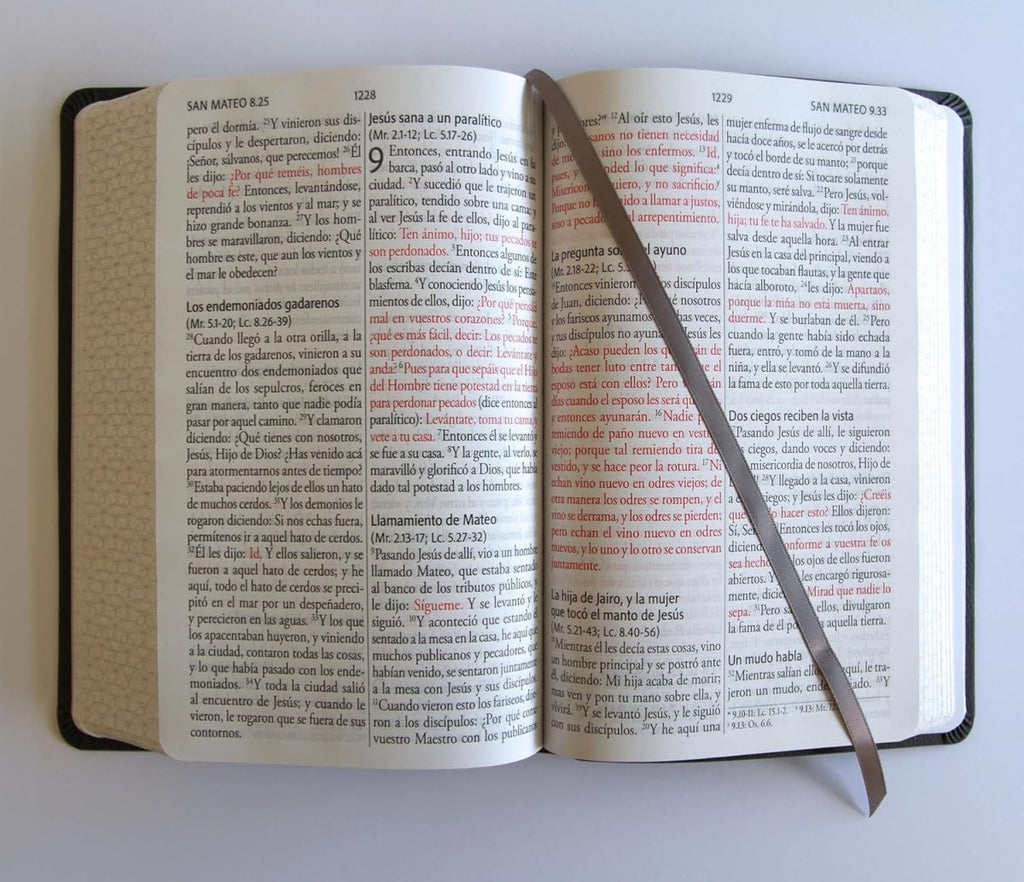 SAN MATEO 8.25
1228
pero él dormía. 25Y vinieron sus dis-
cípulos y le despertaron, diciendo:
¡Señor, sálvanos, que perecemos! 26Él
les dijo: ¿Por qué teméis, hombres
de poca fe? Entonces, levantándose,
reprendió a los vientos y al mar; y se
hizo grande bonanza. 27Y los hom-
bres se maravillaron, diciendo: ¿Qué
hombre es este, que aun los vientos y
el mar le obedecen?
Los endemoniados gadarenos
(Mr. 5.1-20; Lc. 8.26-39)
28Cuando llegó a la otra orilla, a la
tierra de los gadarenos, vinieron a su
encuentro dos endemoniados que
salían de los sepulcros, feroces en
gran manera, tanto que nadie podía
pasar por aquel camino. 29Y clamaron
diciendo: ¿Qué tienes con nosotros,
Jesús, Hijo de Dios? ¿Has venido acá
para atormentarnos antes de tiempo?
30Estaba paciendo lejos de ellos un hato
de muchos cerdos. 31Y los demonios le
rogaron diciendo: Si nos echas fuera,
permítenos ir a aquel hato de cerdos.
32Él les dijo: Id. Y ellos salieron, y se
fueron a aquel hato de cerdos; y he
aquí, todo el hato de cerdos se preci-
pitó en el mar por un despeñadero,
y perecieron en las aguas. 33Y los que
los apacentaban huyeron, y viniendo
a la ciudad, contaron todas las cosas,
y lo que había pasado con los ende-
moniados. 34Y toda la ciudad salió
al encuentro de Jesús; y cuando le
vieron, le rogaron que se fuera de sus
contornos.
Jesús sana a un paralítico
(Mr. 2.1-12; Lc. 5.17-26)
9 Entonces, entrando Jesús en la
barca, pasó al otro lado y vino a su
ciudad. 2Y sucedió que le trajeron un
paralítico, tendido sobre una cama; y
al ver Jesús la fe de ellos, dijo al para-
lítico: Ten ánimo, hijo; tus pecados te
son perdonados. 3Entonces algunos de
los escribas decían dentro de sí: Este
blasfema. 4Y conociendo Jesús los pensa-
mientos de ellos, dijo: ¿Por qué pensáis
mal en vuestros corazones? 5Porque,
¿qué es más fácil, decir: Los pecados te
son perdonados, o decir: Levántate y
anda? 6Pues para que sepáis que el Hijo
del Hombre tiene potestad en la tierra
para perdonar pecados (dice entonces al
paralítico): Levántate, toma tu cama, y
vete a tu casa. 7Entonces él se levantó y
se fue a su casa. 8Y la gente, al verlo, se
maravilló y glorificó a Dios, que había
dado tal potestad a los hombres.
Llamamiento de Mateo
(Mr. 2.13-17; Lc. 5.27-32)
9Pasando Jesús de allí, vio a un hombre
llamado Mateo, que estaba sentado
al banco de los tributos públicos, y
le dijo: Sígueme. Y se levantó y le
siguió. 10Y aconteció que estando él
sentado a la mesa en la casa, he aquí que
muchos publicanos y pecadores, que
habían venido, se sentaron juntamente
a la mesa con Jesús y sus discípulos.
11Cuando vieron esto los fariseos, dije-
ron a los discípulos: ¿Por qué come
vuestro Maestro con los publicanos
1229
SAN MATEO 9.33
ores? 12Al oír esto Jesús, les
sanos no tienen necesidad
de mé sino los enfermos. 13Id,
pues, y ended lo que significa:
Misericor uiero, y no sacrificio.
Porque no a llamar a justos,
sino a pecado al arrepentimiento.
La pregunta so el ayuno
(Mr. 2.18-22; Lc. 5.3
14Entonces vinieron os discípulos
de Juan, diciendo: ¿Po é nosotros
y los fariseos ayunamos has veces,
y tus discípulos no ayuna Jesús les
dijo: ¿Acaso pueden los qu án de
bodas tener luto entre tan e el
esposo está con ellos? Pero v án
días cuando el esposo les será qu
y entonces ayunarán. 16Nadie p
remiendo de paño nuevo en vest
viejo; porque tal remiendo tira de
vestido, y se hace peor la rotura. 17Ni
echan vino nuevo en odres viejos; de
otra manera los odres se rompen, y el
vino se derrama, y los odres se pierden;
pero echan el vino nuevo en odres
nuevos, y lo uno y lo otro se conservan
juntamente.
La hija de Jairo, y la mujer
que tocó el manto de Jesús
(Mr. 5.21-43; Lc. 8.40-56)
18Mientras él les decía estas cosas, vino
un hombre principal y se postró ante
él, diciendo: Mi hija acaba de morir;
mas ven y pon tu mano sobre ella, y
vivirá. 19Y se levantó Jesús, y le siguió
con sus discípulos. 20Y he aquí una
mujer enferma de flujo de sangre desde
hacía doce años, se le acercó por detrás
y tocó el borde de su manto; 21porque
decía dentro de sí: Si tocare solamente
su manto, seré salva. 22Pero Jesús, vol-
viéndose y mirándola, dijo: Ten ánimo,
hija; tu fe te ha salvado. Y la mujer fue
salva desde aquella hora. 23Al entrar
Jesús en la casa del principal, viendo a
los que tocaban flautas, y la gente que
hacía alboroto, 24les dijo: Apartaos,
porque la niña no está muerta, sino
duerme. Y se burlaban de él. 25Pero
cuando la gente había sido echada
fuera, entró, y tomó de la mano a la
niña, y ella se levantó. 26Y se difundió
la fama de esto por toda aquella tierra.
Dos ciegos reciben la vista
27Pasando Jesús de allí, le siguieron
os ciegos, dando voces y diciendo:
misericordia de nosotros, Hijo de
28Y llegado a la casa, vinieron
a iegos; y Jesús les dijo: ¿Creéis
que o hacer esto? Ellos dijeron:
Sí, Señ Entonces les tocó los ojos,
diciend onforme a vuestra fe os
sea hecho los ojos de ellos fueron
abiertos. Y les encargó rigurosa-
mente, dicie Mirad que nadie lo
sepa. 31Pero sa ellos, divulgaron
la fama de él po a aquella tierra.
Un mudo habla
32Mientras salían ell quí, le tra-
jeron un mudo, ende o. 33Y
9.10-11: Lc. 15.1-2. 9.13: Mt. 12
9.13: Os. 6.6.